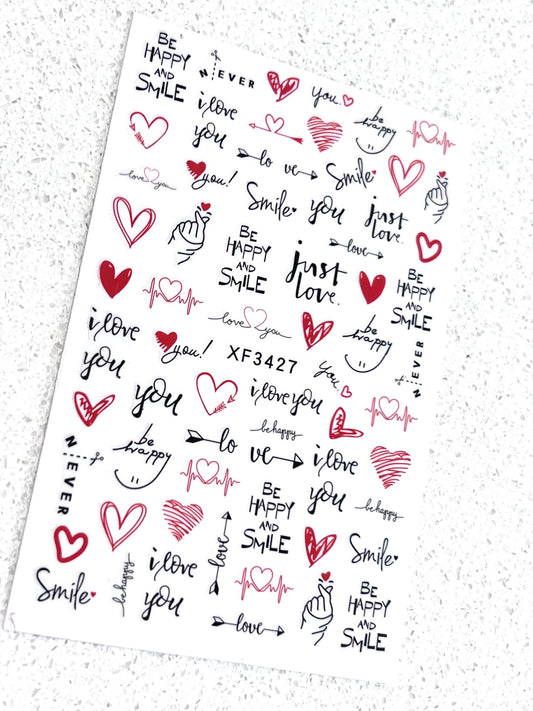 BE
HAPPY
AND
SMILE
NEVER
you.
be
happy
i love
you
love you
you!
lo ve
Smile
Smile
you
just
love.
love
BE
HAPPY
AND
SMILE
just
love.
BE
HAPPY
AND
SMILE
i love
you
love you
you!
XF3427
be
happy
you.
NEVER
you
i love you
be happy
be
happy
lo
ve
i love
you
NEVER
BE
HAPPY
AND
SMILE
be happy
love
Smile
be happy
i love
you
love
Smile
BE
HAPPY
AND
SMILE